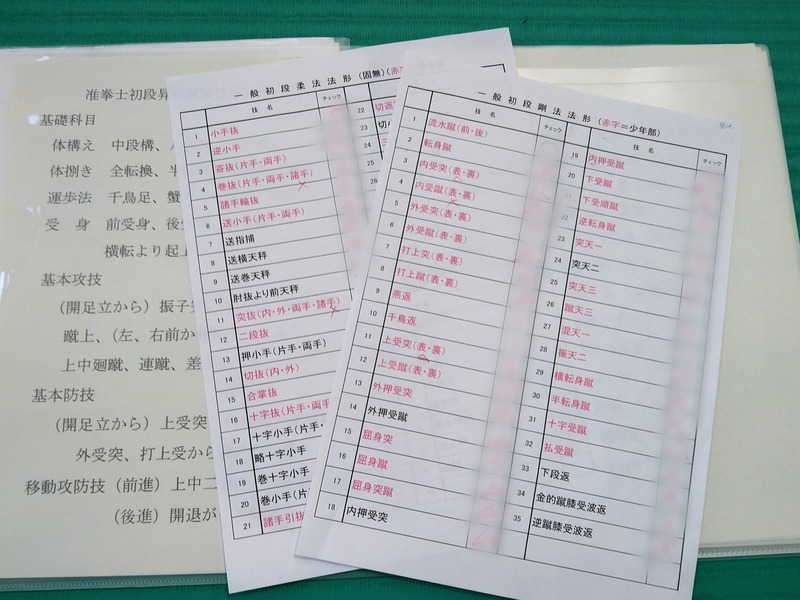 准拳士初段昇
基礎科目
体構え 中段構、
体捌き 全転換、半
運歩法 千鳥足、蟹
受 身 前受身、後
横転より起上
基本攻技
(開足立から)振子突
蹴上、(左、右前か
上中廻蹴、連蹴、差
基本防技
(開足立から)上受突
外受突、打上受から
移動攻防技(前進)上中二
(後進)開退が
一般初段柔法法形(固無)(赤
技 名 チェック
1 小手抜
2 逆小手
3 寄抜(片手・両手)
4 巻抜(片手・両手・諸手)
5 諸手輪抜
6 送小手(片手・両手)
7 送指捕
8 送横天秤
9 送巻天秤
10 肘抜より前天秤
11 突抜(内・外・両手・諸手)
12 二段抜
13 押小手(片手・両手)
14 切抜(内・外)
15 合掌抜
16 十字抜(片手・両手
17 十字小手(片
18 略十字小手
19 巻十字小手
20 巻小手(片手
21 諸手引抜
22 切返
23 切小
24
25
26
一般初段剛法法形(赤字=少年部)
技 名 チェック
1 流水蹴(前・後)
2 転身蹴
3 内受突(表・裏)
4 内受蹴(表・裏)
5 外受突(表・裏)
6 外受蹴(表・裏)
7 打上突(表・裏)
8 打上蹴(表・裏)
9 燕返
10 千鳥返
11 上受突(表・裏)
12 上受蹴(表・裏)
13 外押受突
14 外押受蹴
15 屈身突
16 屈身蹴
17 屈身突蹴
18 内押受突
技 名 チェック
19 内押受蹴
20 下受蹴
21 下受順蹴
22 逆転身蹴
23 突天一
24 突天二
25 突天三
26 蹴天三
27 混天一
28 振天二
29 横転身蹴
30 半転身蹴
31 十字受蹴
32 払受蹴
33 下段返
34 金的蹴膝受波返
35 逆蹴膝受波返